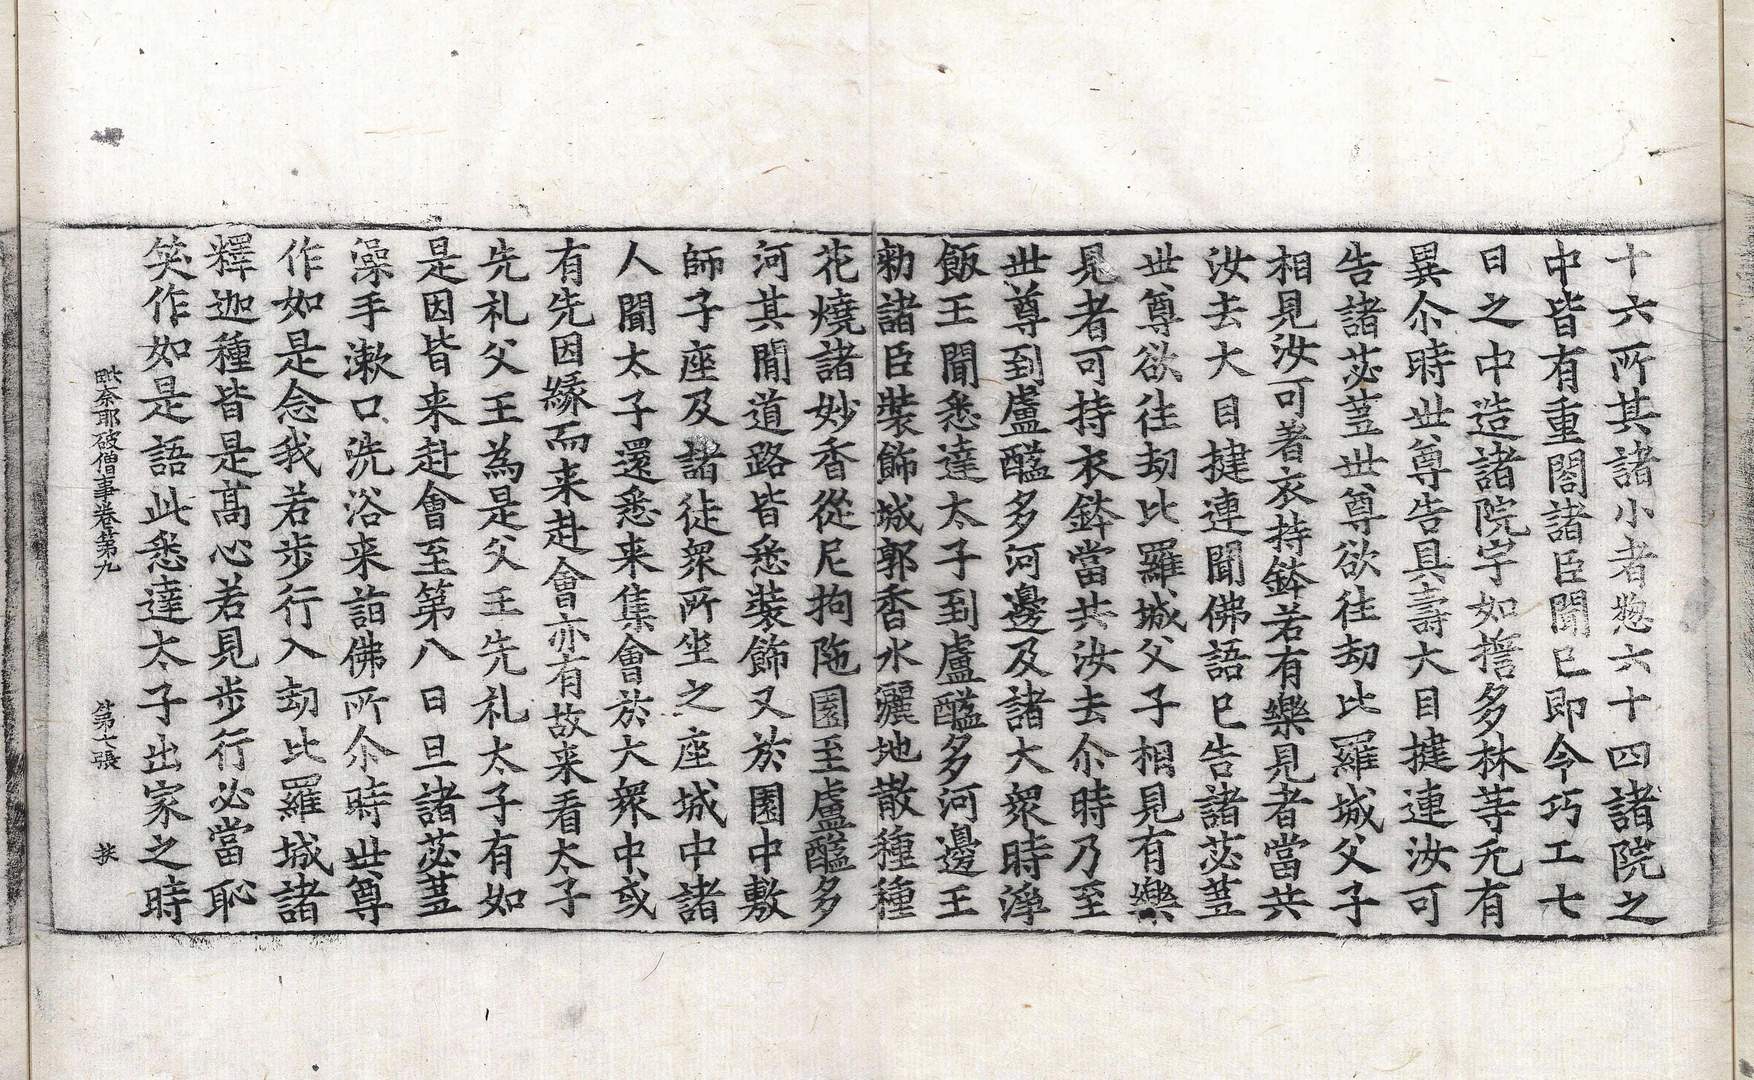 十六所其諸小者惣六十四諸院之
中皆有重閣諸臣聞已即令巧工七
日之中造諸院宇如擔多林等无有
異尒時世尊告具壽大目揵連汝可
告諸苾蒭世尊欲往劫比羅城父子
相見汝可著衣持鉢若有樂見者當共
汝去大目揵連聞佛語已告諸苾蒭
世尊欲往劫比羅城父子相見有樂
見者可持衣鉢當共汝去尒時乃至
世尊到盧醯多河邊及諸大衆時淨
飯王聞悉達太子到盧醯多河邊王
勑諸臣裝飾城郭香水灑地散種種
花燒諸妙香從尼拘陁園至盧醯多
河其間道路皆悉裝飾又於園中敷
師子座及諸徒衆所坐之座城中諸
人聞太子還悉来集會於大衆中或
有先因緣而来赴會亦有故来看太子
先礼父王為是父王先礼太子有如
是因皆来赴會至第八日旦諸苾蒭
澡手漱口洗浴来詣佛所尒時世尊
作如是念我若步行入劫比羅城諸
釋迦種皆是髙心若見步行必當恥
笑作如是語此悉達太子出家之時
毗奈耶破僧事卷第九 第六張 扶